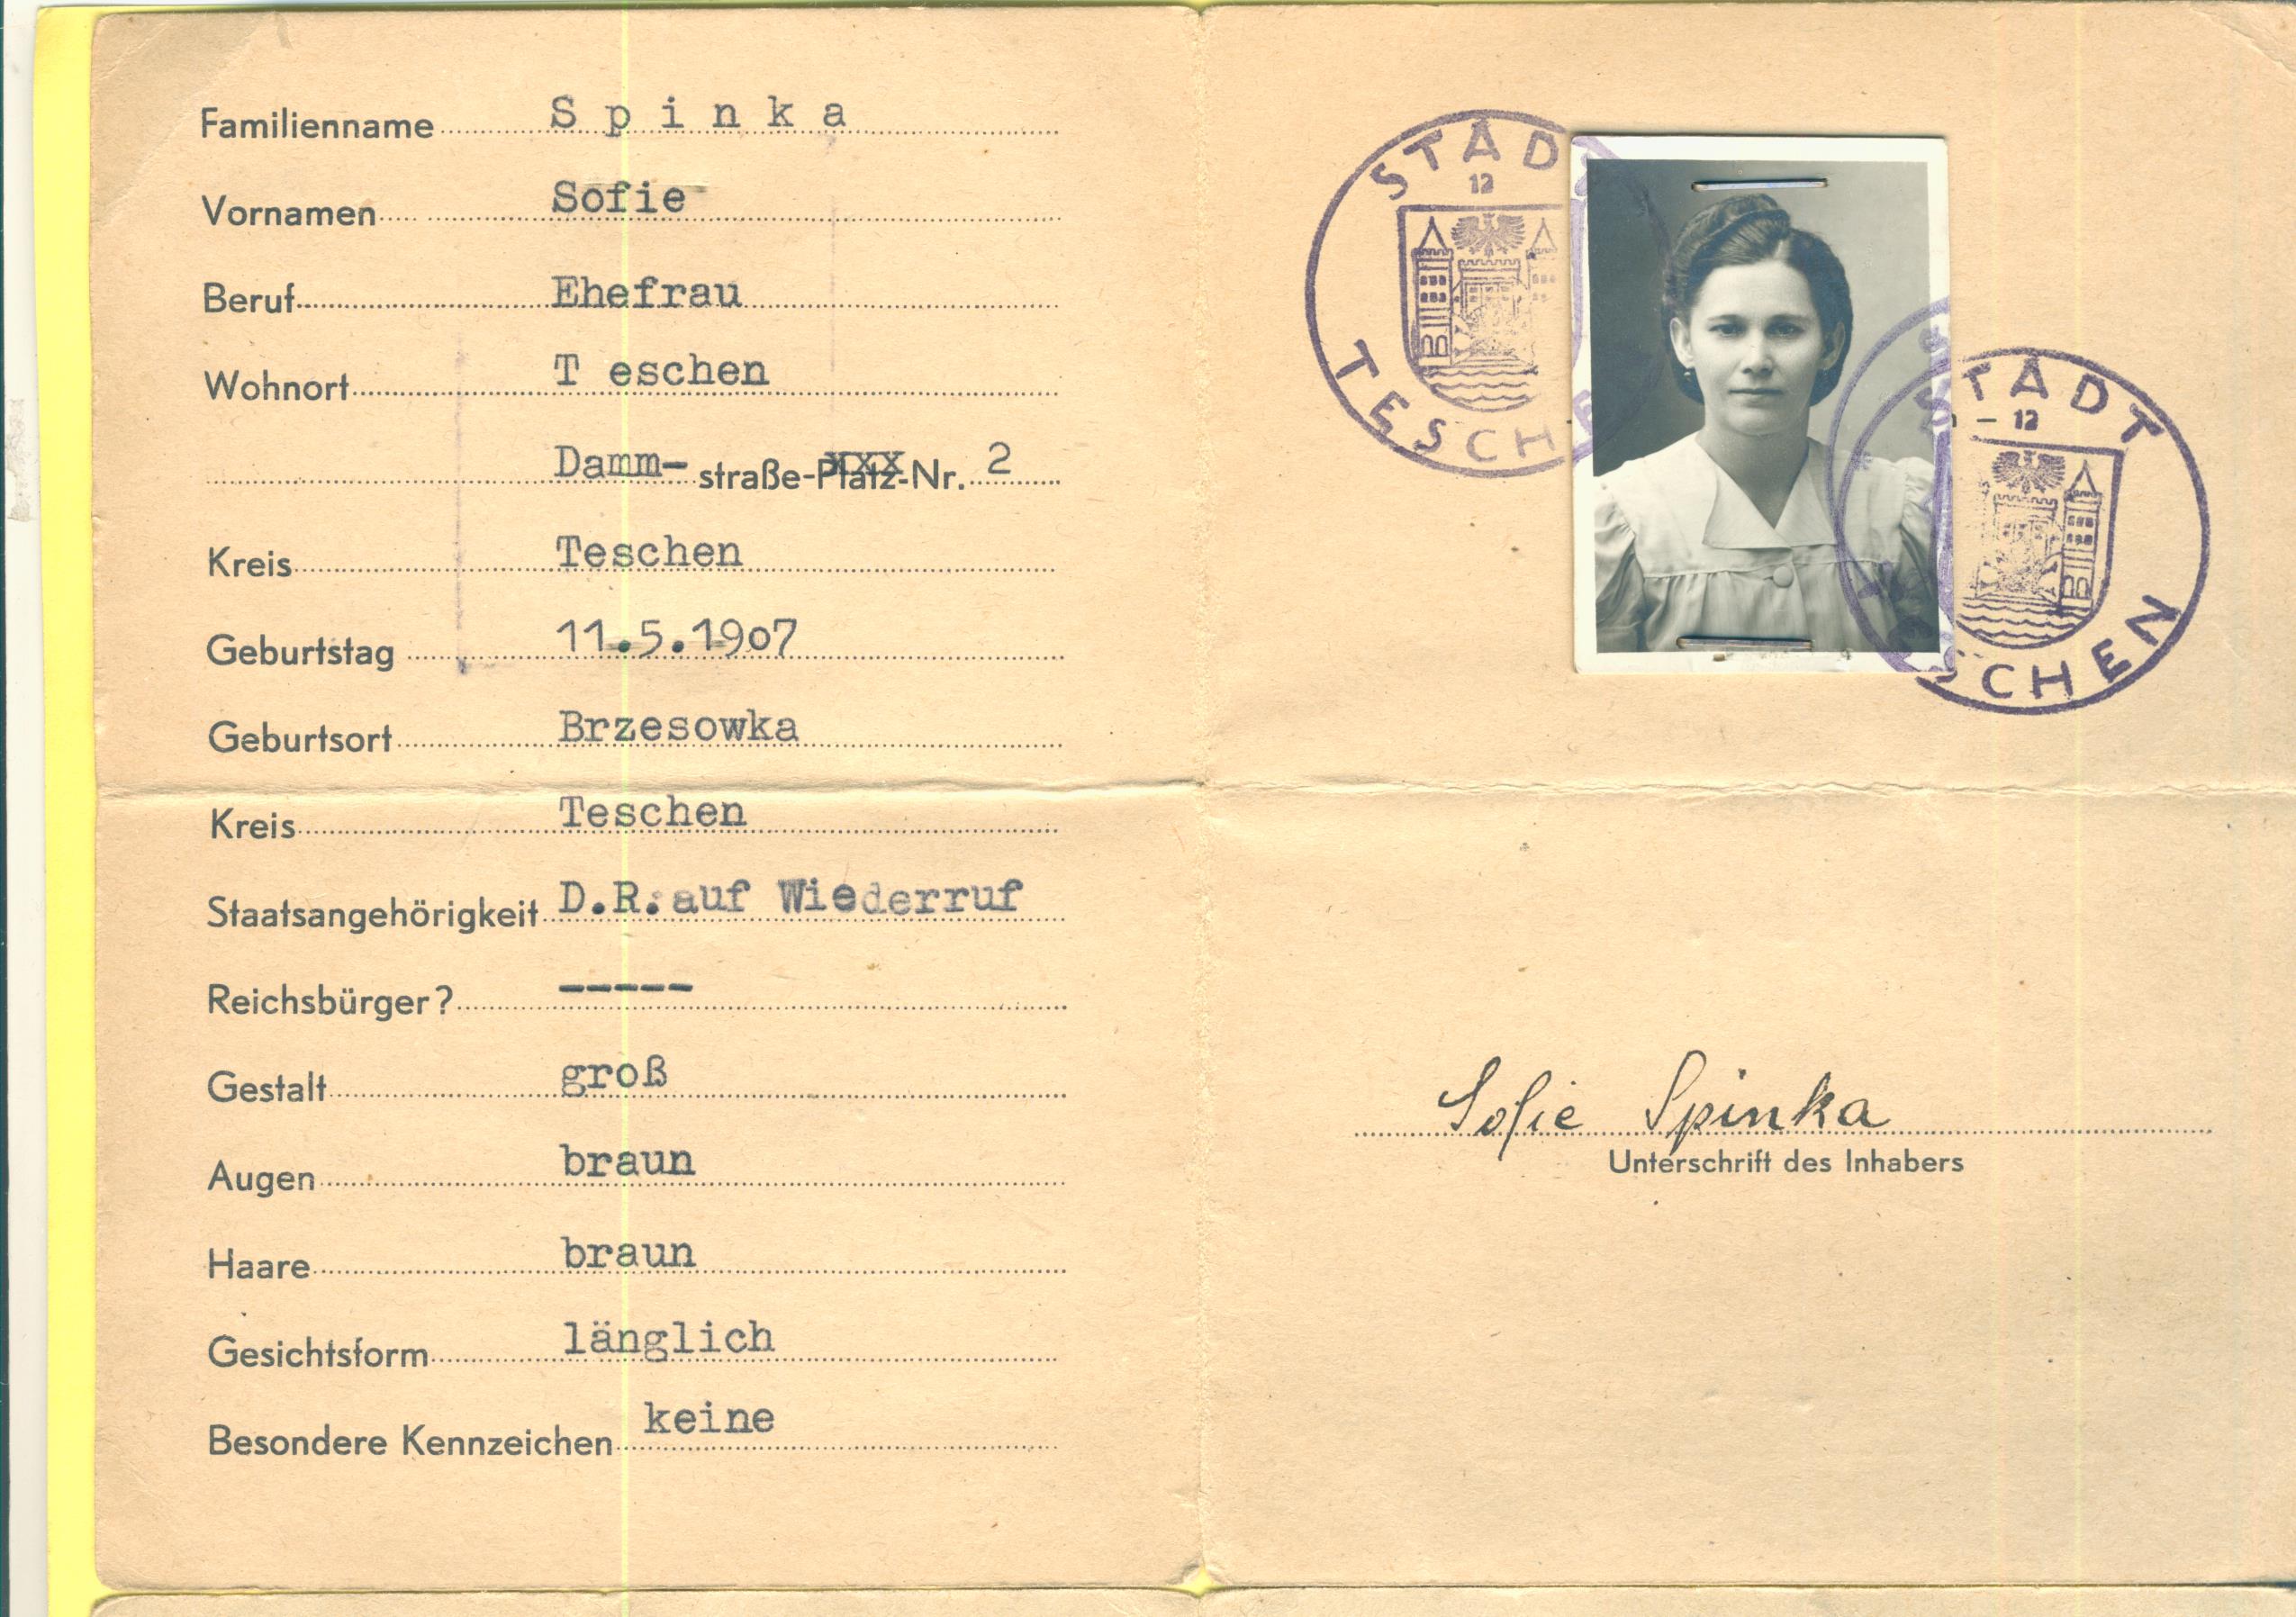 Familienname Spinka
Vornamen Sofie
Beruf Ehefrau
Wohnort T eschen
Damm- straße-Platz-Nr. 2
Kreis Teschen
Geburtstag 11.5.1907
Geburtsort Brzesowka
Kreis Teschen
Staatsangehörigkeit D.R. auf Wiederruf
Reichsbürger? -----
Gestalt groß
Augen braun
Haare braun
Gesichtsform länglich
Besondere Kennzeichen keine
STADT
12
TESCHE
STADT
- 12
SCHEN
Sofie Spinka
Unterschrift des Inhabers